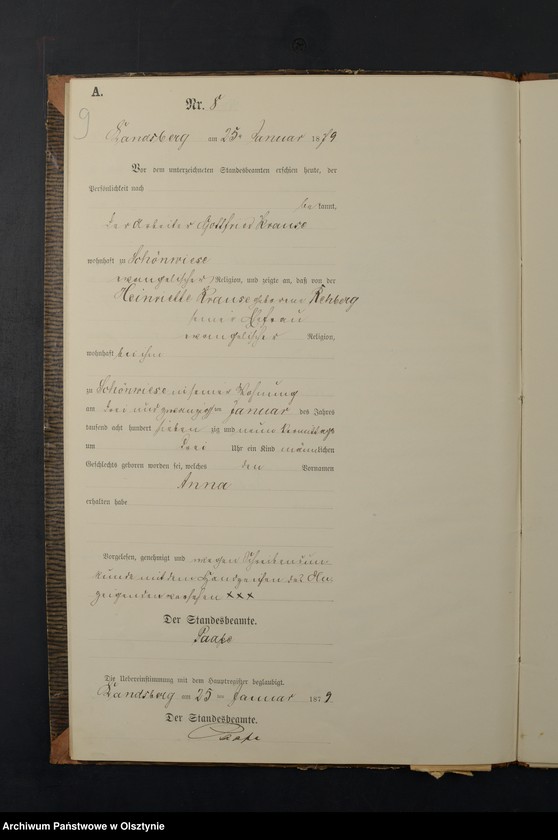 A.
9
Nr. 8
Landsberg am 25ten Januar 1879
Vor dem unterzeichneten Standesbeamten erschien heute, der
Persönlichkeit nach
be kannt,
der Arbeiter Gottfried Krause
wohnhaft zu Schönwiese
evangelischer Religion, und zeigte an, daß von der
Heinriette Krause geborene Rehberg
seiner Ehefrau
evangelischer Religion,
wohnhaft bei ihm
zu Schönwiese in seiner Wohnung
am drei und zwanzigsten Januar des Jahres
tausend acht hundert sieben zig und neun Vormittags
um drei Uhr ein Kind männlichen
Geschlechts geboren worden sei, welches den Vornamen
Anna
erhalten habe
Vorgelesen, genehmigt und wegen Schreibensun-
kunde mit dem Handzeichen des An-
zeigenden versehen xxx
Der Standesbeamte.
Paape
Die Uebereinstimmung mit dem Hauptregister beglaubigt.
Landsberg am 25ten Januar 1879
Der Standesbeamte.
Paape
Archiwum Państwowe w Olsztynie